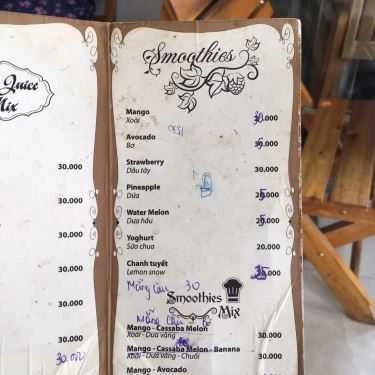 Juice
Mix
30.000
30.000
30.000
30.000
30.000
30.000
30.000
30.000
30.000
Smoothies
Mango
Xoài
Avocado
Bơ
30.000
Strawberry
Dâu tây
30.000
Pineapple
Dứa
Water Melon
Dưa hấu
Yoghurt
Sữa chua
20.000
Chanh tuyết
Lemon snow
Mãng Cầu 30
Smoothies
Mix
Mango - Cassaba Melon
Xoài - Dưa vàng
30.000
Mango - Cassaba Melon - Banana
Xoài - Dưa vàng - Chuối
30.000
Mango - Avocado
30.000